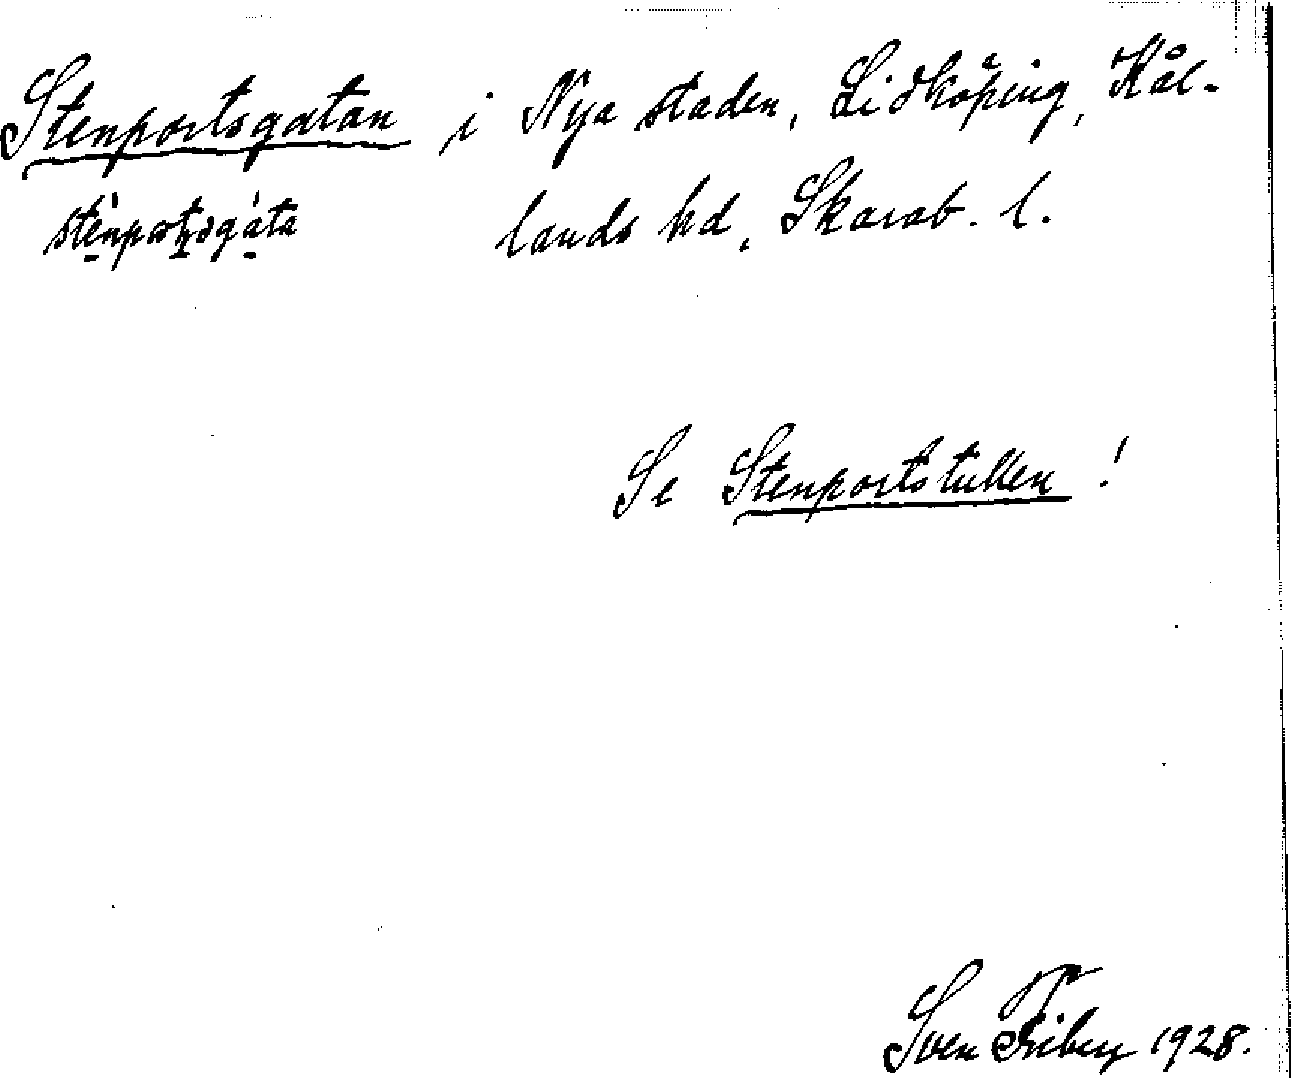 Stenportsgatan i Nya staden, Lidköping, Kål-
lands hd, Skarab. l.
Se Stenportstullen!
Sven Friberg 1928.